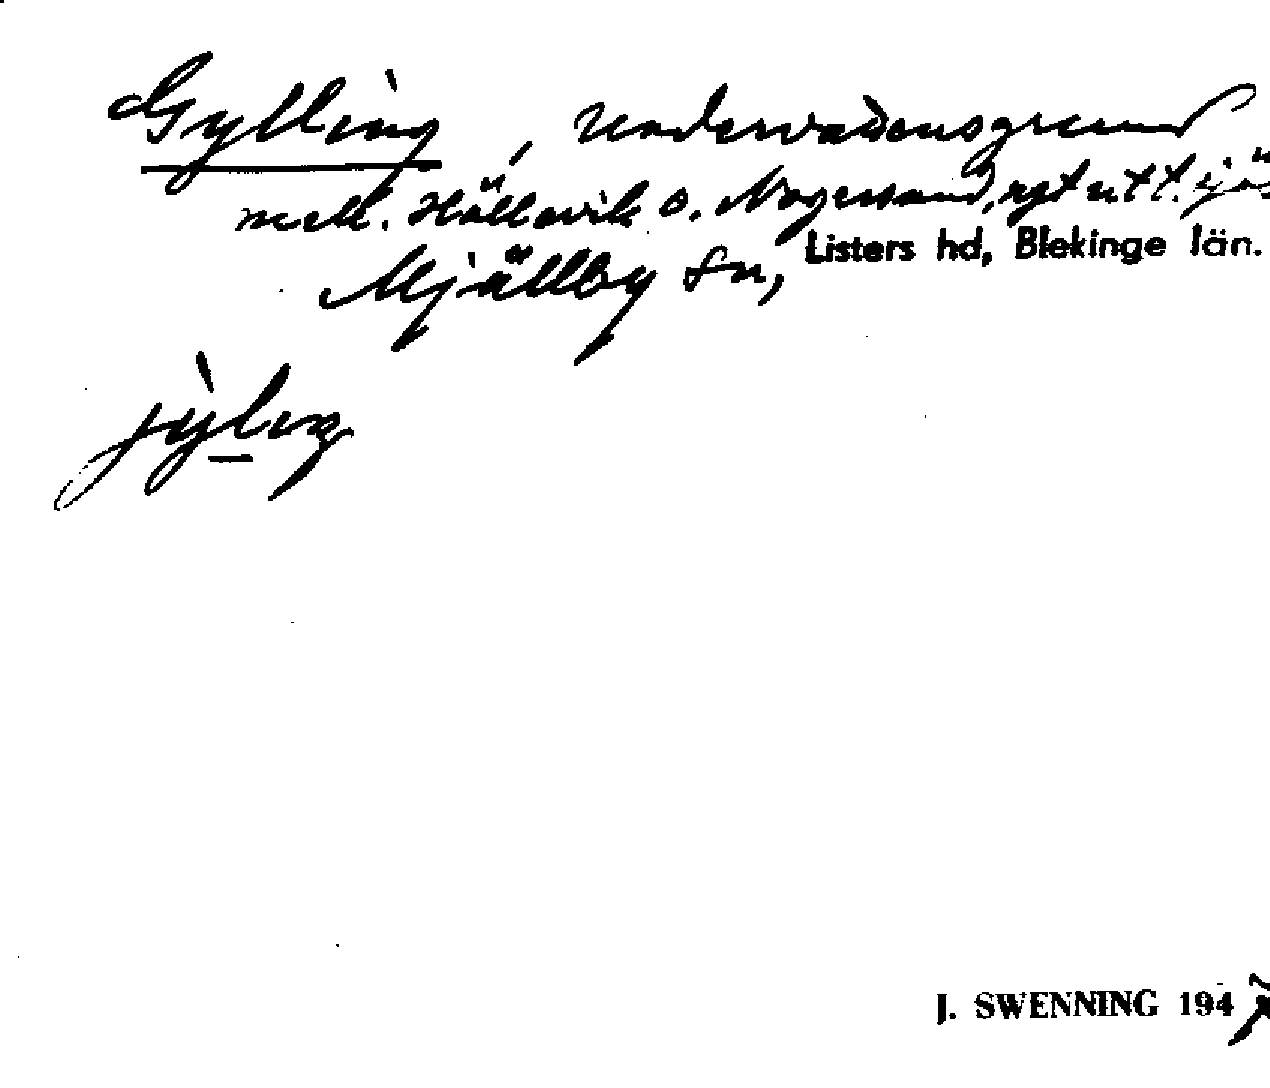 Gylling, undervattensgrund
mell. Hällevik o. Nogersund, rgt ut t. sjös
Mjällby sn, Listers hd, Blekinge län.
jýlıng
J. SWENNING 194